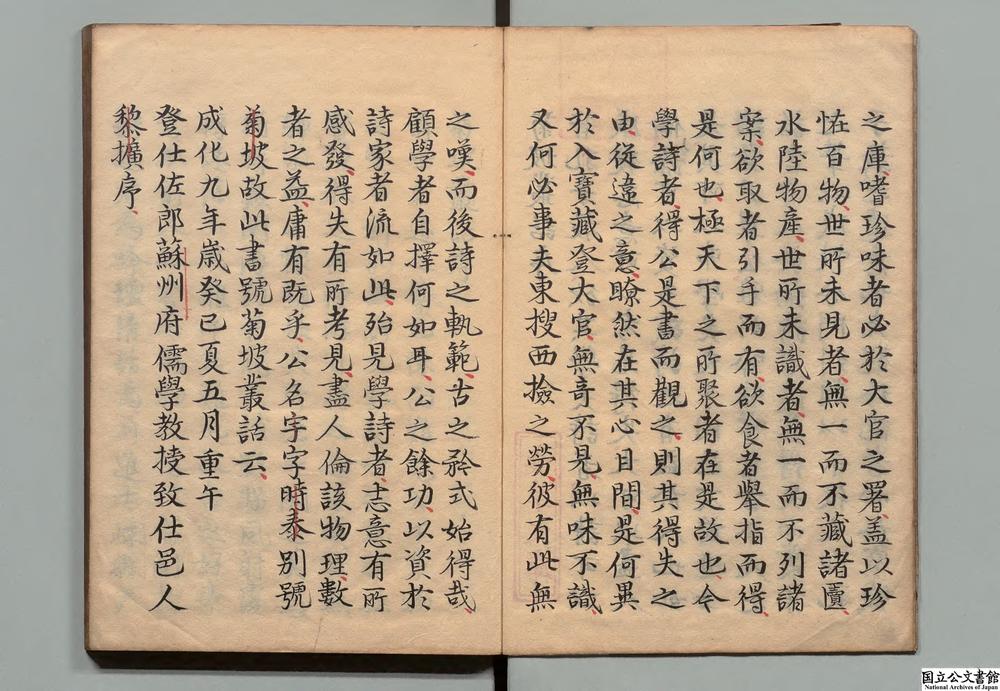 之庫嗜珍味者必於大官之署盖以珍
恠百物世所未見者無一而不藏諸匱
水陸物産世所未識者無一而不列諸
案欲取者引手而有欲食者舉指而得
是何也極天下之所聚者在是故也今
學詩者得公是書而觀之則其得失之
由從違之意瞭然在其心目間是何異
於入寶藏登大官無奇不見無味不識
又何必事夫東搜西撿之勞彼有此無
之嘆而後詩之軌範古之矜式始得哉
顧學者自擇何如耳公之餘功以資於
詩家者流如此殆見學詩者志意有所
感發得失有所考見盡人倫該物理數
者之益庸有既乎公名宇字時泰別號
菊坡故此書號菊坡叢話云
成化九年歳癸巳夏五月重午
登仕佐郎蘇州府儒學教授致仕邑人
黎擴序
国立公文書館
National Archives of Japan